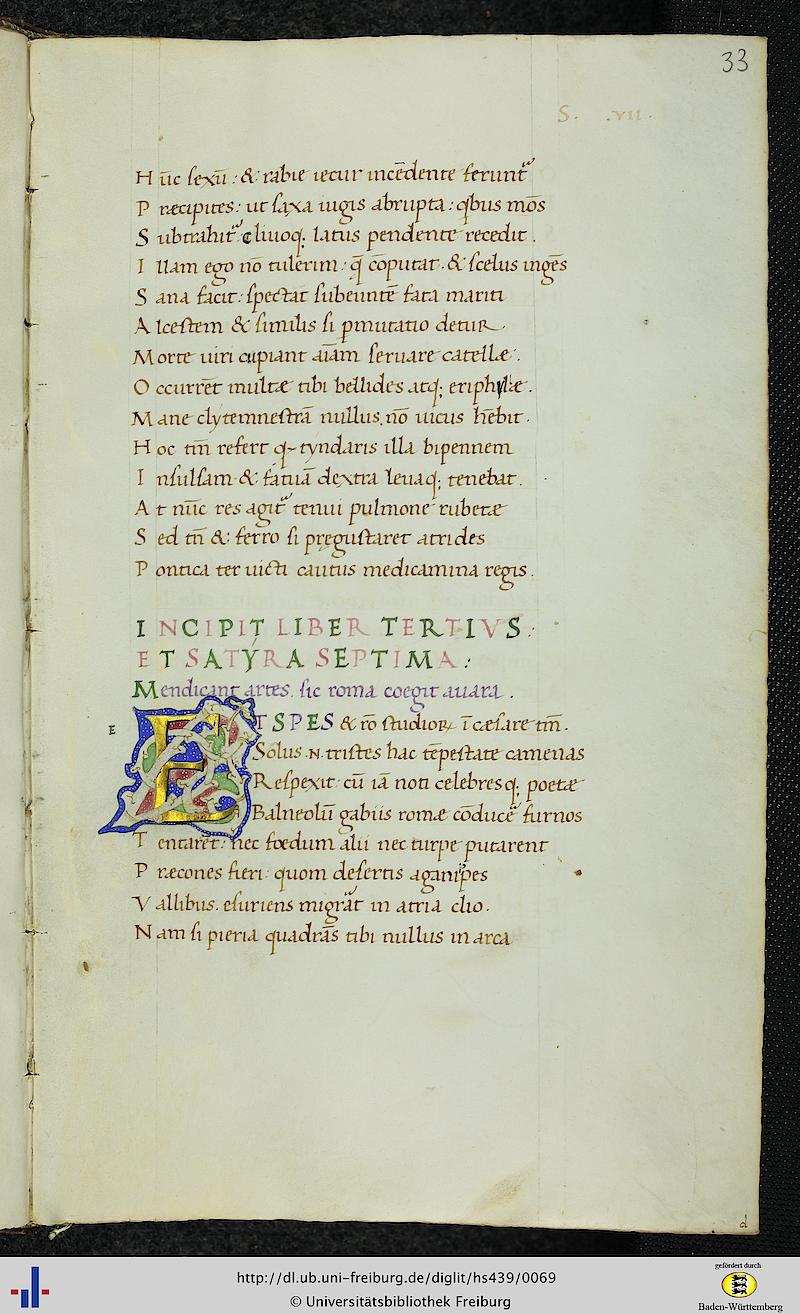 33
S. .VII.
H ūc ſexū : & rabie iecur incēdente ferunt᷑
P ræcipites : ut ſaxa iugis abrupta : q̄bus mōs
S ubtrahit᷑ cliuoq; latus pendente recedit .
I llam ego nō tulerim : q̄ cōputat . & ſcelus ingēs
S ana facit : ſpectat ſubeuntē fata mariti
A lceſtem & ſimilis ſi pmutatio detur .
M orte uiri cupiant aīam ſeruare catellæ .
O ccurrēt multæ tibi bellides atq; eriphylæ .
M ane clytemneſtrā nullus nō uicus hēbit .
H oc tm̄ refert q~ tyndaris illa bipennem
I nſulſam & fatuā dextra leuaq; tenebat .
A t nūc res agit᷑ tenui pulmone rubetæ
S ed tn̄ & ferro ſi pręguſtaret atrides
P ontica ter uicti cautus medicamina regis .
INCIPIT LIBER TERTIVS :
ET SATYRA SEPTIMA :
Mendicant artes . ſic roma coegit auara .
E
ET SPES & rō ſtudioꝝ ī cæſare tm̄ .
Solus .N. triſtes hac tēpeſtate camenas
Reſpexit cū iā noti celebresq; poetæ
Balneolū gabiis romæ cōducē furnos
T entarēt : nec foedum alii nec turpe putarent
P ræcones fieri : quom deſertis aganipes
V allibus . eſuriens migrāt in atria clio .
N am ſi pieria quadrās tibi nullus in arca
d
http://dl.ub.uni-freiburg.de/diglit/hs439/0069
© Universitätsbibliothek Freiburg
gefördert durch
Baden-Württemberg